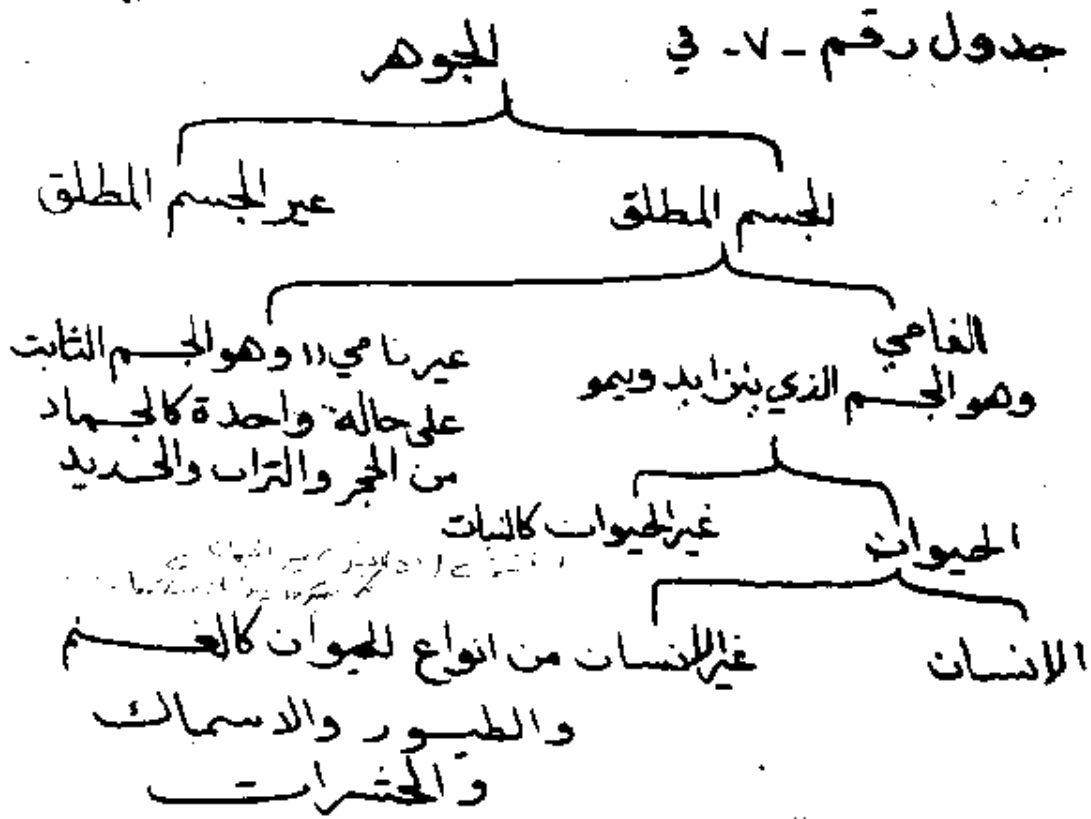 جدول رقم - ٧ - في
الجوهر
الجسم المطلق
غير الجسم المطلق
النامي
وهو الجسم الذي يتزايد وينمو
غير نامي (( وهو الجسم الثابت
على حالة واحدة كالجماد
من الحجر والتراب والحديد
الحيوان
غير الحيوان كالنبات
الانسان
غير الانسان من انواع الحيوان كالغنم
والطيور والاسماك
والحشرات